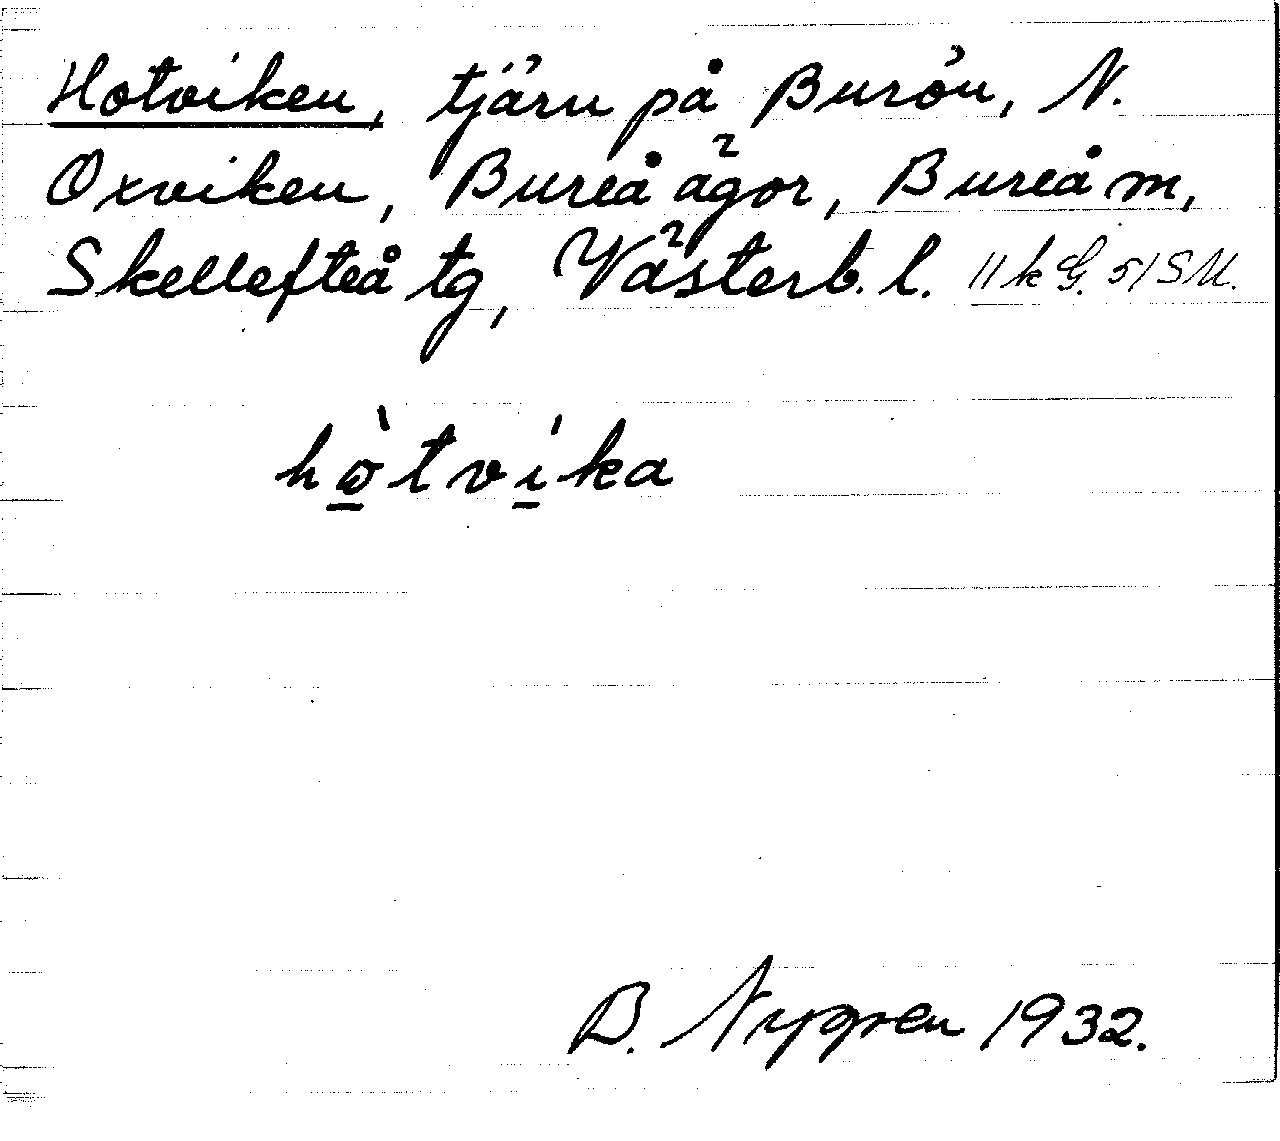 Hotviken, tjärn på Burön, N.
Oxviken, Bureå ägor, Bureå m,
Skellefteå tg, Västerb. l. 11 k G. 51 SM.
hòtvíka
B. Nygren 1932.